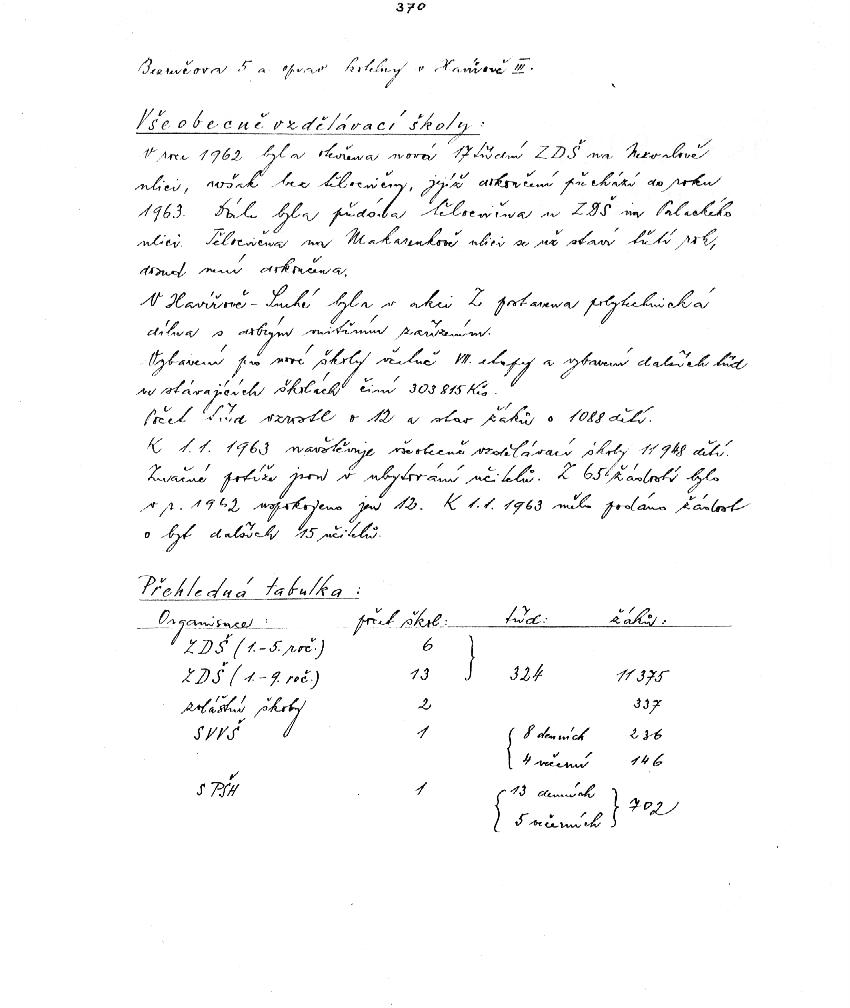 370
Bezručova 5 a oprav kotelny v Havířově III.
Všeobecně vzdělávací školy:
V roce 1962 byla otevřena nová 17třídní ZDŠ na Nezvalově
ulici, však bez tělocvičny, jejíž dokončení přechází do roku
1963. Dále byla předána tělocvična u ZDŠ na Palackého
ulici. Tělocvična na Makarenkově ulici se už staví třetí rok,
dosud není dokončena.
V Havířově-Suché byla v akci Z postavena polytechnická
dílna s dobrým vnitřním zařízením.
Vybavení pro nové školy včetně VII. etapy a vybavení dalších tříd
ve stávajících školách činí 303 815 Kčs.
Počet tříd vzrostl o 12 a stav žáků o 1088 dětí.
K 1.1. 1963 navštěvuje všeobecně vzdělávací školy 11 948 dětí.
Značné potíže jsou v ubytování učitelů. Z 65 žádostí bylo
v r. 1962 uspokojeno jen 12. K 1.1. 1963 mělo podáno žádost
o byt dalších 15 učitelů.
Přehledná tabulka:
Organisace: počet škol: tříd: žáků:
ZDŠ (1.-5. roč.) 6
ZDŠ (1.-9. roč.) 13 324 11 375
zvláštní školy 2 337
SVVŠ 1 8 denních 236
4 večerní 146
SPŠH 1 13 denních 702
5 večerních